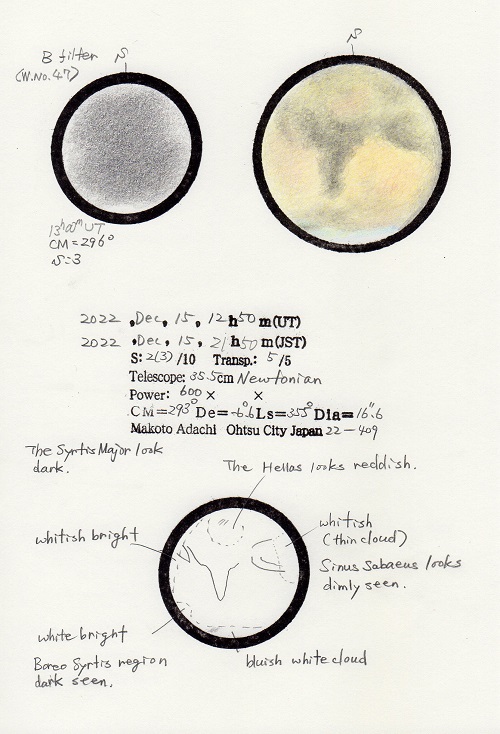 B filter
(W.No.47)
S
S
13h00m UT
CM=296°
S=3
2022 ,Dec, 15, 12h50m(UT)
2022 ,Dec, 15, 21h50m(JST)
S: 2(3)/10 Transp.: 5/5
Telescope: 35.5cm Newtonian
Power: 600× ×
CM=293° De=-6°.6 Ls=355° Dia=16".6
Makoto Adachi Ohtsu City Japan 22-409
The Syrtis Major look
dark.
The Hellas looks reddish.
whitish bright
whitish
(thin cloud)
Sinus Sabaeus looks
dimly seen.
white bright
Boreo Syrtis region
dark seen.
bluish white cloud